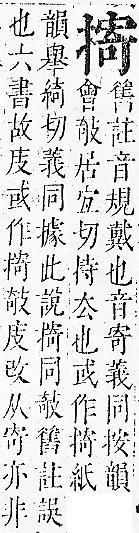 掎舊註音規戴也音寄義同按韻
會攲居宜切持去也或作掎紙
韻舉綺切義同據此說掎同攲舊註誤
也六書故庋或作掎攲庋改从寄亦非